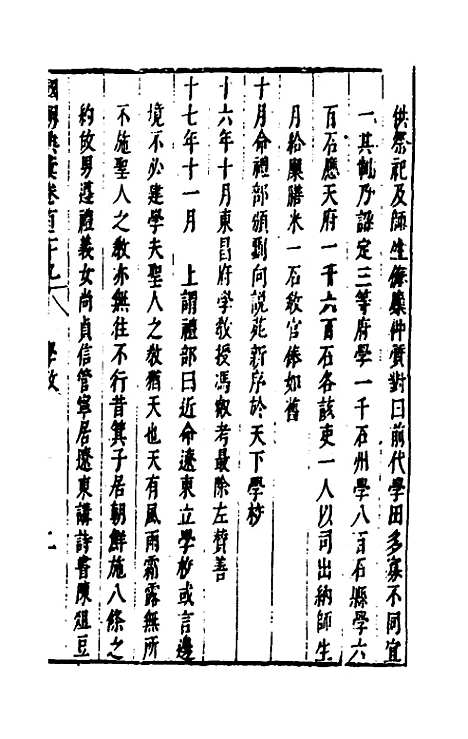 供祭祀及師生俸廩仲質對曰前代學田多寡不同宜
一其制乃詔定三等府學一千石州學八百石縣學六
百石應天府一千六百石各該吏一人以司出納師生
月給廩膳米一石教官俸如舊
十月命禮部頒劉向說苑新序於天下學校
十六年十月東昌府學教授馮叡考最除左贊善
十七年十一月　上謂禮部曰近命遼東立學校或言邊
境不必建學夫聖人之教猶天也天有風雨霜露無所
不施聖人之教亦無往不行昔箕子居朝鮮施八條之
約故男遵禮義女尚貞信管寧居遼東講詩書陳俎豆
國朝典彙卷百二十九　學政　二